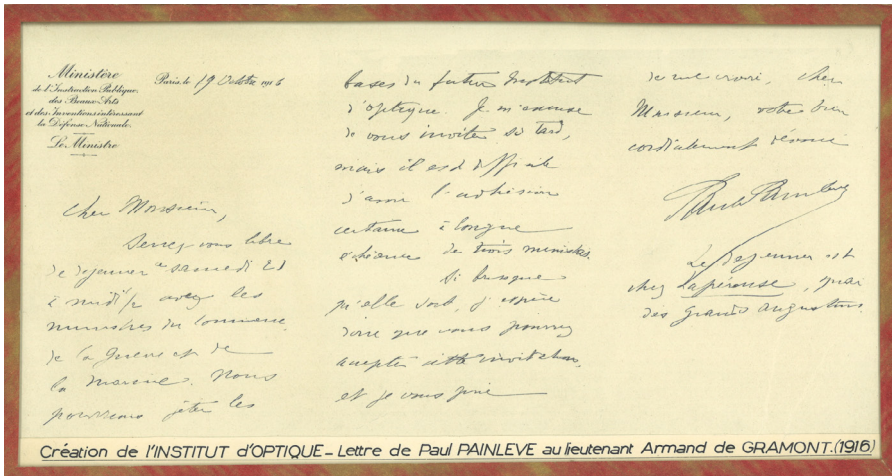 Ministère
de l'Instruction Publique,
des Beaux-Arts
et des Inventions intéressant
la Défense Nationale.
Le Ministre
Paris, le 19 Octobre 1916
Cher Monsieur,
Serez-vous libre
de déjeuner ce samedi 21
à midi ½ avec les
ministres du Commerce
de la Guerre et de
la Marine. Nous
pourrions jeter les
bases du futur Institut
d'optique. Je m'excuse
de vous inviter si tard,
mais il est difficile
d'avoir l'adhésion
certaine à longue
échéance de trois ministres.
Si brusque
qu'elle soit, j'espère
donc que vous pourrez
accepter cette invitation
et je vous prie
de me croire, cher
Monsieur, votre bien
cordialement dévoué
Paul Painlevé
Le déjeuner est
chez Lapérouse, quai
des Grands Augustins.
Création de l'INSTITUT d'OPTIQUE - Lettre de Paul PAINLEVE au lieutenant Armand de GRAMONT. (1916)